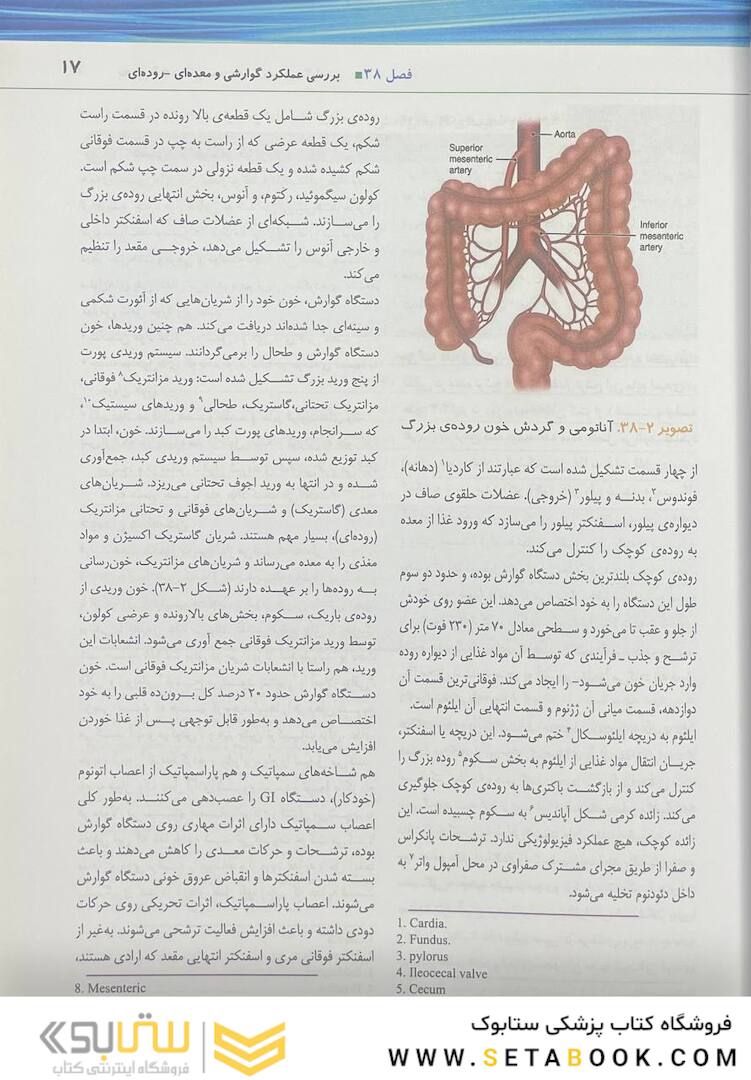 فصل ۳۸ ■ بررسی عملکرد گوارشی و معده‌ای -روده‌ای
۱۷
Aorta
Superior
mesenteric
artery
Inferior
mesenteric
artery
تصویر ۲-۳۸. آناتومی و گردش خون روده‌ی بزرگ
از چهار قسمت تشکیل شده است که عبارتند از کاردیا۱ (دهانه)،
فوندوس۲، بدنه و پیلور۳ (خروجی). عضلات حلقوی صاف در
دیواره‌ی پیلور، اسفنکتر پیلور را می‌سازد که ورود غذا از معده
به روده‌ی کوچک را کنترل می‌کند.
روده‌ی کوچک بلندترین بخش دستگاه گوارش بوده، و حدود دو سوم
طول این دستگاه را به خود اختصاص می‌دهد. این عضو روی خودش
از جلو و عقب تا می‌خورد و سطحی معادل ۷۰ متر (۲۳۰ فوت) برای
ترشح و جذب ـ فرآیندی که توسط آن مواد غذایی از دیواره روده
وارد جریان خون می‌شود- را ایجاد می‌کند. فوقانی‌ترین قسمت آن
دوازدهه، قسمت میانی آن ژژنوم و قسمت انتهایی آن ایلئوم است.
ایلئوم به دریچه ایلئوسکال۴ ختم می‌شود. این دریچه یا اسفنکتر،
جریان انتقال مواد غذایی از ایلئوم به بخش سکوم۵ روده بزرگ را
کنترل می‌کند و از بازگشت باکتری‌ها به روده‌ی کوچک جلوگیری
می‌کند. زائده کرمی شکل آپاندیس۶ به سکوم چسبیده است. این
زائده کوچک، هیچ عملکرد فیزیولوژیکی ندارد. ترشحات پانکراس
و صفرا از طریق مجرای مشترک صفراوی در محل آمپول واتر۷ به
داخل دئودنوم تخلیه می‌شود.
1. Cardia.
2. Fundus.
3. pylorus
4. Ileocecal valve
5. Cecum
روده‌ی بزرگ شامل یک قطعه‌ی بالا رونده در قسمت راست
شکم، یک قطعه عرضی که از راست به چپ در قسمت فوقانی
شکم کشیده شده و یک قطعه نزولی در سمت چپ شکم است.
کولون سیگموئید، رکتوم، و آنوس، بخش انتهایی روده‌ی بزرگ
را می‌سازند. شبکه‌ای از عضلات صاف که اسفنکتر داخلی
و خارجی آنوس را تشکیل می‌دهد، خروجی مقعد را تنظیم
می‌کند.
دستگاه گوارش، خون خود را از شریان‌هایی که از آئورت شکمی
و سینه‌ای جدا شده‌اند دریافت می‌کند. هم چنین وریدها، خون
دستگاه گوارش و طحال را برمی‌گردانند. سیستم وریدی پورت
از پنج ورید بزرگ تشکیل شده است: ورید مزانتریک۸ فوقانی،
مزانتریک تحتانی،گاستریک، طحالی۹ و وریدهای سیستیک۱۰،
که سرانجام، وریدهای پورت کبد را می‌سازند. خون، ابتدا در
کبد توزیع شده، سپس توسط سیستم وریدی کبد، جمع‌آوری
شده و در انتها به ورید اجوف تحتانی می‌ریزد. شریان‌های
معدی (گاستریک) و شریان‌های فوقانی و تحتانی مزانتریک
(روده‌ای)، بسیار مهم هستند. شریان گاستریک اکسیژن و مواد
مغذی را به معده می‌رساند و شریان‌های مزانتریک، خون‌رسانی
به روده‌ها را بر عهده دارند (شکل ۲-۳۸). خون وریدی از
روده‌ی باریک، سکوم، بخش‌های بالارونده و عرضی کولون،
توسط ورید مزانتریک فوقانی جمع آوری می‌شود. انشعابات این
ورید، هم راستا با انشعابات شریان مزانتریک فوقانی است. خون
دستگاه گوارش حدود ۲۰ درصد کل برون‌ده قلبی را به خود
اختصاص می‌دهد و به‌طور قابل توجهی پس از غذا خوردن
افزایش می‌یابد.
هم شاخه‌های سمپاتیک و هم پاراسمپاتیک از اعصاب اتونوم
(خودکار)، دستگاه GI را عصب‌دهی می‌کنند. به‌طور کلی
اعصاب سمپاتیک دارای اثرات مهاری روی دستگاه گوارش
بوده، ترشحات و حرکات معدی را کاهش می‌دهند و باعث
بسته شدن اسفنکترها و انقباض عروق خونی دستگاه گوارش
می‌شوند. اعصاب پاراسمپاتیک، اثرات تحریکی روی حرکات
دودی داشته و باعث افزایش فعالیت ترشحی می‌شوند. به‌غیر از
اسفنکتر فوقانی مری و اسفنکتر انتهایی مقعد که ارادی هستند،
8. Mesenteric
فروشگاه کتاب پزشکی ستابوک
WWW.SETABOOK.COM
ستابوک
فروشگاه اینترنتی کتاب